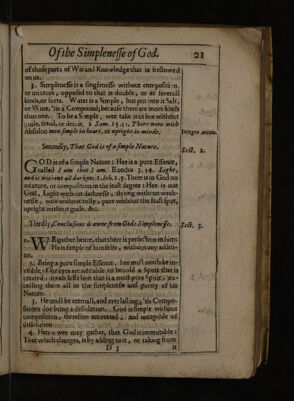 Of the Simplenesse of God.
21
of those parts of Wit and Knowledge that is bestowed
on us.
3. Simplenesse is a singlenesse without compositi n.
or mixture, opposed to that is double, or of severall
kinds, or sorts. Water is a Simple, but put into it Salt,
or Wine, 'tis a Compound; because there are more kinds
then one. To be a Simple, wee take it to bee without
guile, fraud, or deceit, 2 Sam. 15.11. There were with
Absolom men simple in heart, or upright in minde.
Integro animo.
Secondly, That God is of a simple Nature.
Sect. 2.
GOD is of a simple Nature: Hee is a pure Essence,
Called I am that I am. Exodus 3. 14. Light,
and is without all darknes. 1. Joh. 1. 5. There is in God no
mixture, or composition in the least degree: Hee is mee
God, Light without darknesse, strong without weak-
nesse, wise without folly, pure without the least spot,
upright without guile, &c.
Thirdly, Conclusions drawne from Gods Simplenesse.
Sect. 3.
WE gather hence, that there is perfection in him.
He is simple of himselfe, without any addi-
on.
2. Being a pure simple Essence, hee must needs be in-
visible. Our eyes are not able to behold a Spirit that is
created: much lesse him that is a most pure Spirit, ex-
celling them all in the simplenesse and purity of his
Nature.
3. He must be eternall, and everlasting; 'tis Compo-
sition that bring a dissolution. God is simple without
composition, therefore uncreated, and uncapable of
dissolution.
4. Hence wee may gather, that God is immutable:
That which changes, it by adding to it, or taking from
D 3
it